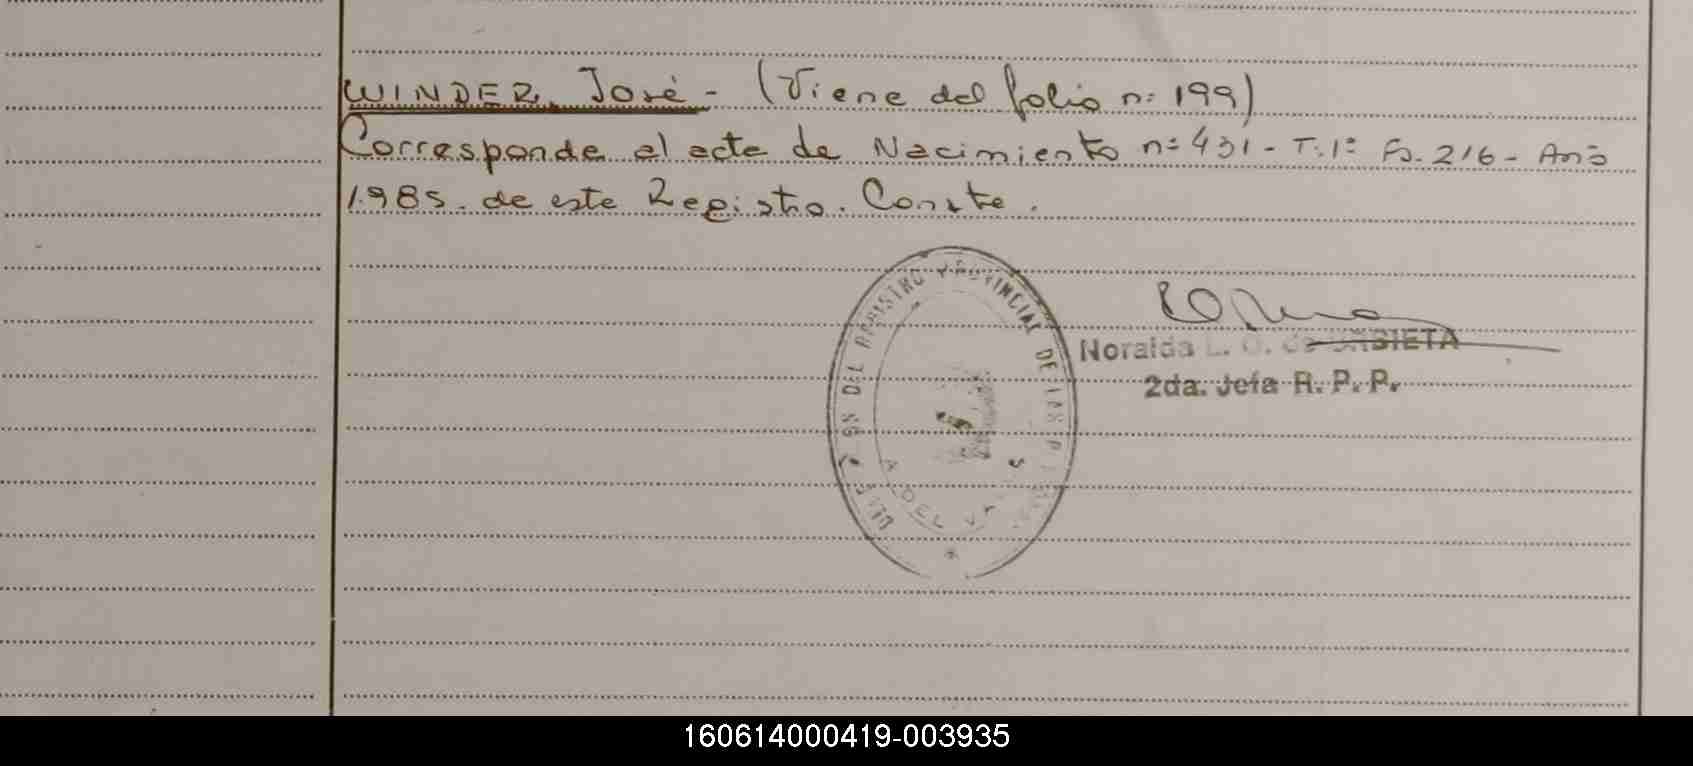 WINDER, José - (Viene del folio n: 199)
Corresponde al acta de Nacimiento nº 431 - T.1º Fo. 216 - Año
1.985. de este Registro. Conste.
DEL REGISTRO PROVINCIAL DE LAS
DEL
Noralda L. O. de
2da. Jefa R. P. P.
160614000419-003935